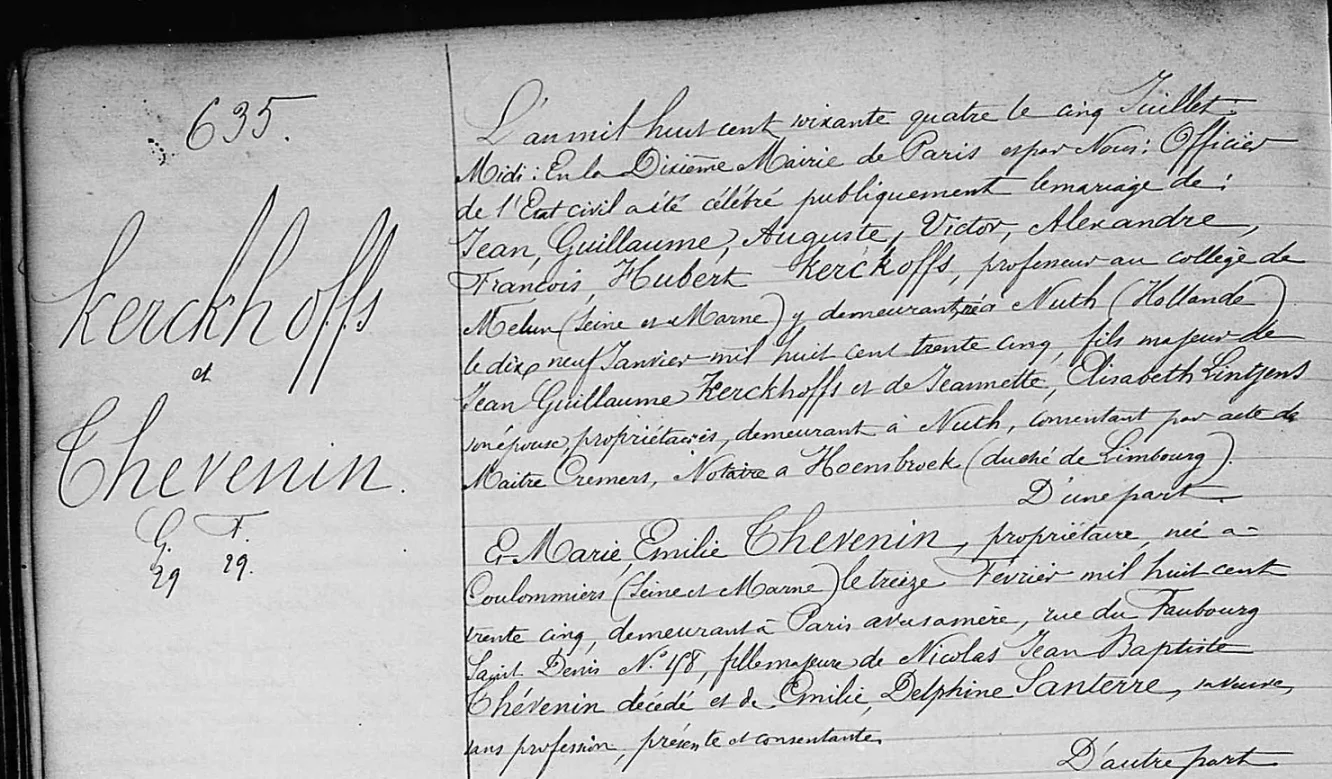 635.
Kerckhoffs
et
Thevenin.
G. F.
29 29.
L'an mil huit cent soixante quatre le cinq Juillet:
Midi: En la Dixième Mairie de Paris et par Nous: Officier
de l'Etat civil a été célébré publiquement le mariage de:
Jean, Guillaume, Auguste, Victor, Alexandre,
François, Hubert Kerckoffs, professeur au collège de
Melun (Seine et Marne) y demeurant né à Nuth (Hollande)
le dix neuf Janvier mil huit cent trente cinq, fils majeur de
Jean Guillaume Kerckhoffs et de Jeannette, Elisabeth Lintjens
son épouse, propriétaires, demeurant à Nuth, consentant par acte de
Maitre Cremers, Notaire a Hoensbroek (duché de Limbourg).
D'une part.
Et Marie, Emilie Thevenin, propriétaire, née à
Coulommiers (Seine et Marne) le treize Février mil huit cent
trente cinq, demeurant à Paris avec sa mère, rue du Faubourg
Saint Denis N.º 158, fille majeure de Nicolas Jean Baptiste
Thévenin décédé et de Emilie, Delphine Santerre, sa veuve,
sans profession, présente et consentante.
D'autre part